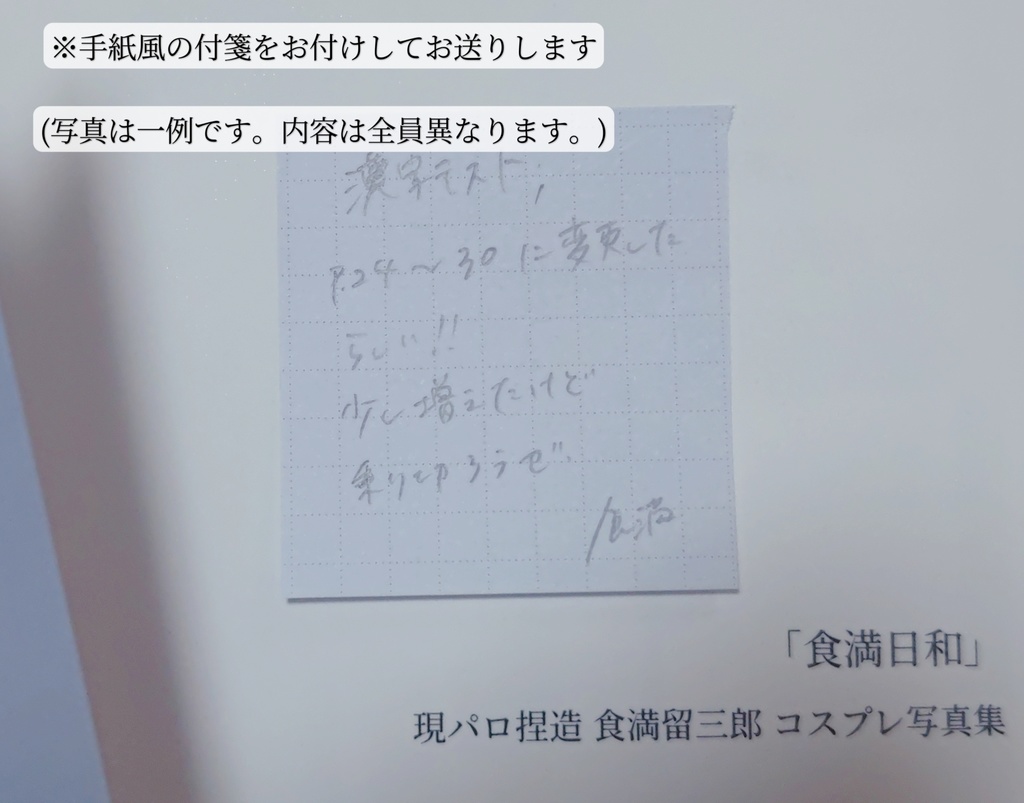 ※手紙風の付箋をお付けしてお送りします
(写真は一例です。内容は全員異なります。)
漢字テスト,
P.24〜30に変更した
らしい!!
少し増えたけど
乗り切ろうぜ.
食満
「食満日和」
現パロ捏造 食満留三郎 コスプレ写真集